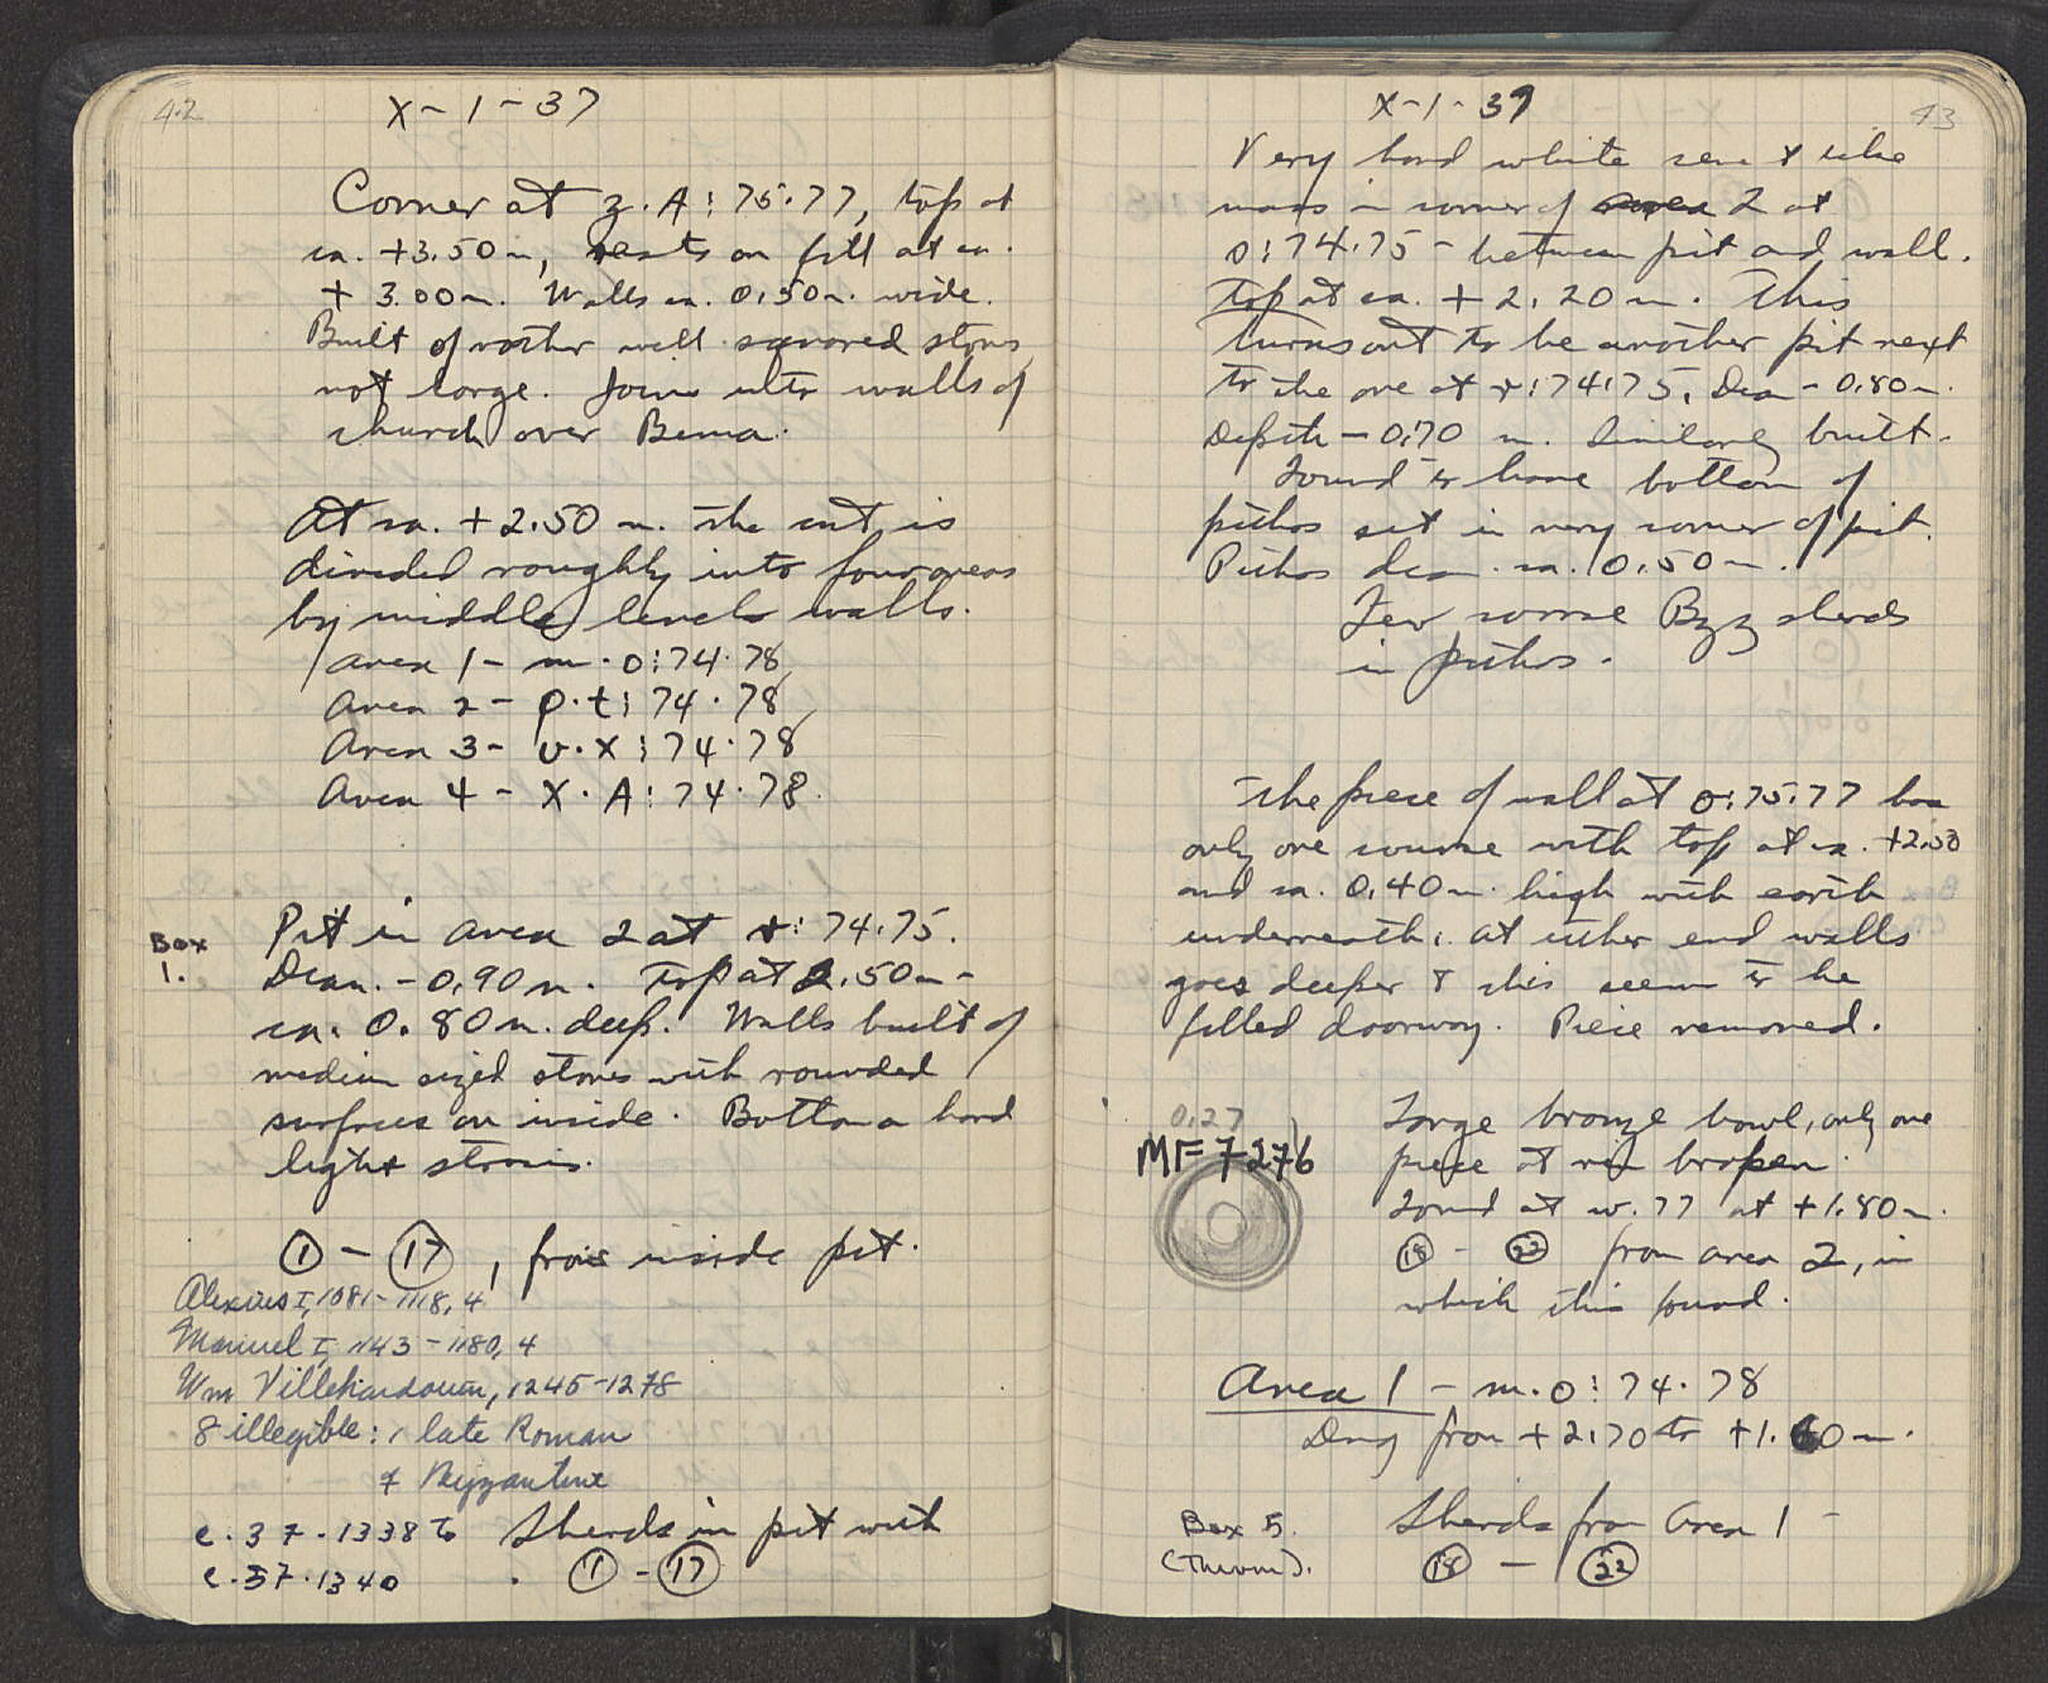 42
X-1-37
Corner at z.A:75.77, top at
ca. +3.50m, rests on fill at ca.
+3.00m. Walls ca. 0.50m. wide.
Built of rather well squared stones
not large. Joins into walls of
church over Bema.
At ca. +2.50 m. the cut is
divided roughly into four areas
by middle levels walls.
Area 1 - m.o:74.78
Area 2 - p.t:74.78
Area 3 - v.x:74.78
Area 4 - X.A:74.78.
Box
1.
Pit in area 2 at r:74.75.
Diam. - 0.90m. Top at 2.50m -
ca. 0.80m. deep. Walls built of
medium sized stones with rounded
surfaces on inside. Bottom a hard
light
① - ⑰, from inside pit.
Alexius I, 1081-1118, 4
Manuel I, 1143-1180, 4
Wm Villehardouin, 1245-1278
8 illegible: 1 late Roman
7 Byzantine
c.37.1338 to
c.37.1340
Sherds in pit with
① - ⑰
43
X-1-37
Very hard white
mass in corner of area 2 at
o:74.75 - between pit and wall.
Top at ca. +2.20m. This
turns out to be another pit next
to the one at r:74.75. Diam - 0.80m.
Depth - 0.70 m. Similarly built.
Found to have bottom of
pithos set in very corner of pit.
Pithos diam. ca. 0.50m.
Few coarse Byz sherds
in pithos.
The piece of wall at o:75.77 has
only one course with top at ca. +2.50
and ca. 0.40m. high with earth
underneath. At either end walls
goes deeper & this seems to be
filled doorway. Piece removed.
0.27
MF 7276
Large bronze bowl, only one
piece at rim broken.
Found at w.77 at +1.80m.
⑱ - ㉒ from area 2, in
which this found.
Area 1 - m.o:74.78
Dug from +2.70 to +1.60m.
Box 5.
Sherds from Area 1 -
⑱ - ㉒